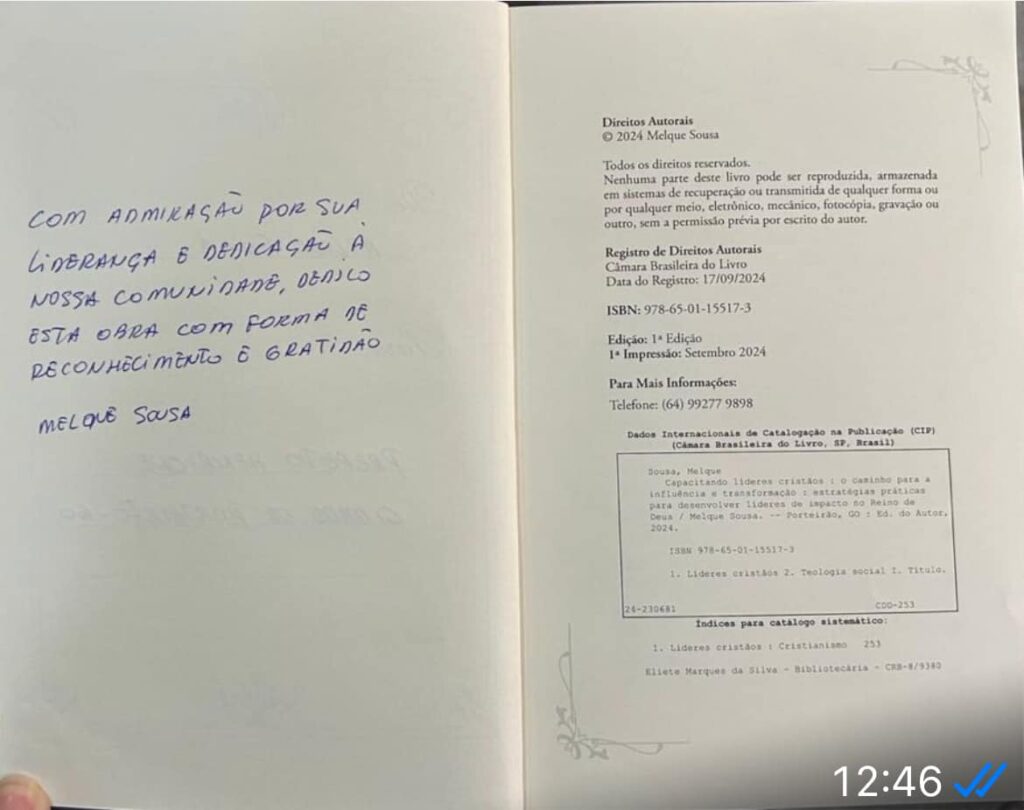 COM ADMIRAÇÃO POR SUA
LIDERANÇA E DEDICAÇÃO À
NOSSA COMUNIDADE, DEDICO
ESTA OBRA COM FORMA DE
RECONHECIMENTO E GRATIDÃO
MELQUE SOUSA
Direitos Autorais
© 2024 Melque Sousa
Todos os direitos reservados.
Nenhuma parte deste livro pode ser reproduzida, armazenada
em sistemas de recuperação ou transmitida de qualquer forma ou
por qualquer meio, eletrônico, mecânico, fotocópia, gravação ou
outro, sem a permissão prévia por escrito do autor.
Registro de Direitos Autorais
Câmara Brasileira do Livro
Data do Registro: 17/09/2024
ISBN: 978-65-01-15517-3
Edição: 1ª Edição
1ª Impressão: Setembro 2024
Para Mais Informações:
Telefone: (64) 99277 9898
Dados Internacionais de Catalogação na Publicação (CIP)
(Câmara Brasileira do Livro, SP, Brasil)
Sousa, Melque
Capacitando líderes cristãos : o caminho para a
influência e transformação : estratégias práticas
para desenvolver líderes de impacto no Reino de
Deus / Melque Sousa. -- Porteirão, GO : Ed. do Autor,
2024.
ISBN 978-65-01-15517-3
1. Líderes cristãos 2. Teologia social I. Título.
24-230681 CDD-253
Índices para catálogo sistemático:
1. Líderes cristãos : Cristianismo 253
Eliete Marques da Silva - Bibliotecária - CRB-8/9380
12:46